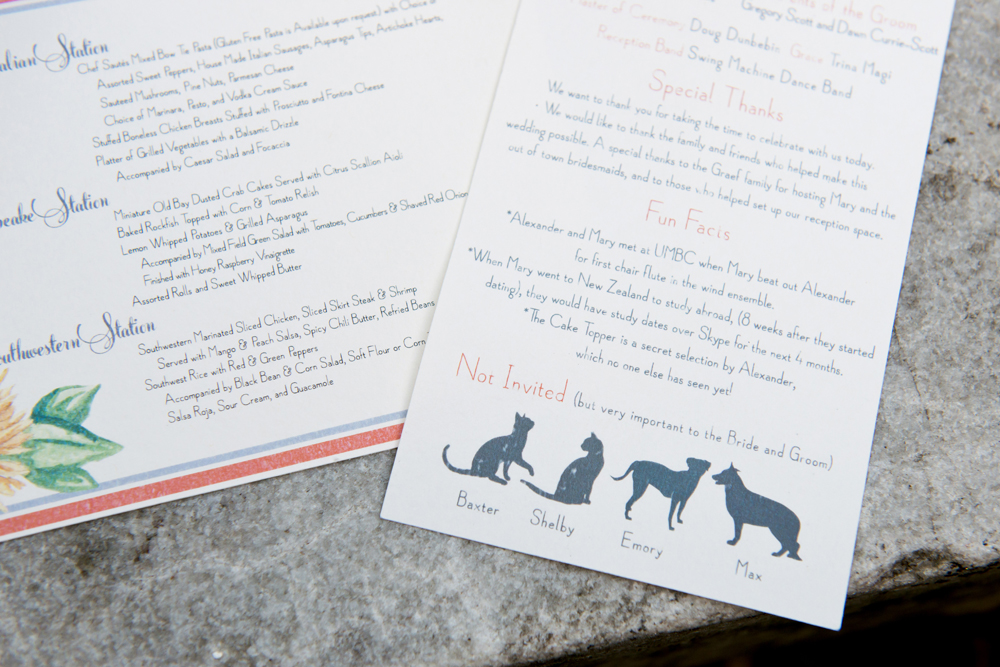 alian Station
Chef Sautés Mixed Bow Tie Pasta (Gluten Free Pasta is Available upon request) with Choice of
Assorted Sweet Peppers, House Made Italian Sausages, Asparagus Tips, Artichoke Hearts,
Sauteed Mushrooms, Pine Nuts, Parmesan Cheese
Choice of Marinara, Pesto, and Vodka Cream Sauce
Stuffed Boneless Chicken Breasts Stuffed with Prosciutto and Fontina Cheese
Platter of Grilled Vegetables with a Balsamic Drizzle
Accompanied by Caesar Salad and Focaccia
peake Station
Miniature Old Bay Dusted Crab Cakes Served with Citrus Scallion Aioli
Baked Rockfish Topped with Corn & Tomato Relish
Lemon Whipped Potatoes & Grilled Asparagus
Accompanied by Mixed Field Green Salad with Tomatoes, Cucumbers & Shaved Red Onion
Finished with Honey Raspberry Vinaigrette
Assorted Rolls and Sweet Whipped Butter
outhwestern Station
Southwestern Marinated Sliced Chicken, Sliced Skirt Steak & Shrimp
Served with Mango & Peach Salsa, Spicy Chili Butter, Refried Beans
Southwest Rice with Red & Green Peppers
Accompanied by Black Bean & Corn Salad, Soft Flour or Corn
Salsa Roja, Sour Cream, and Guacamole
of the Groom
Gregory Scott and Dawn Currie-Scott
Master of Ceremony Doug Dunbebin Grace Trina Magi
Reception Band Swing Machine Dance Band
Special Thanks
We want to thank you for taking the time to celebrate with us today.
We would like to thank the family and friends who helped make this
wedding possible. A special thanks to the Graef family for hosting Mary and the
out of town bridesmaids, and to those who helped set up our reception space.
Fun Facts
*Alexander and Mary met at UMBC when Mary beat out Alexander
for first chair flute in the wind ensemble.
*When Mary went to New Zealand to study abroad, (8 weeks after they started
dating), they would have study dates over Skype for the next 4 months.
*The Cake Topper is a secret selection by Alexander,
which no one else has seen yet!
Not Invited (but very important to the Bride and Groom)
Baxter Shelby Emory Max